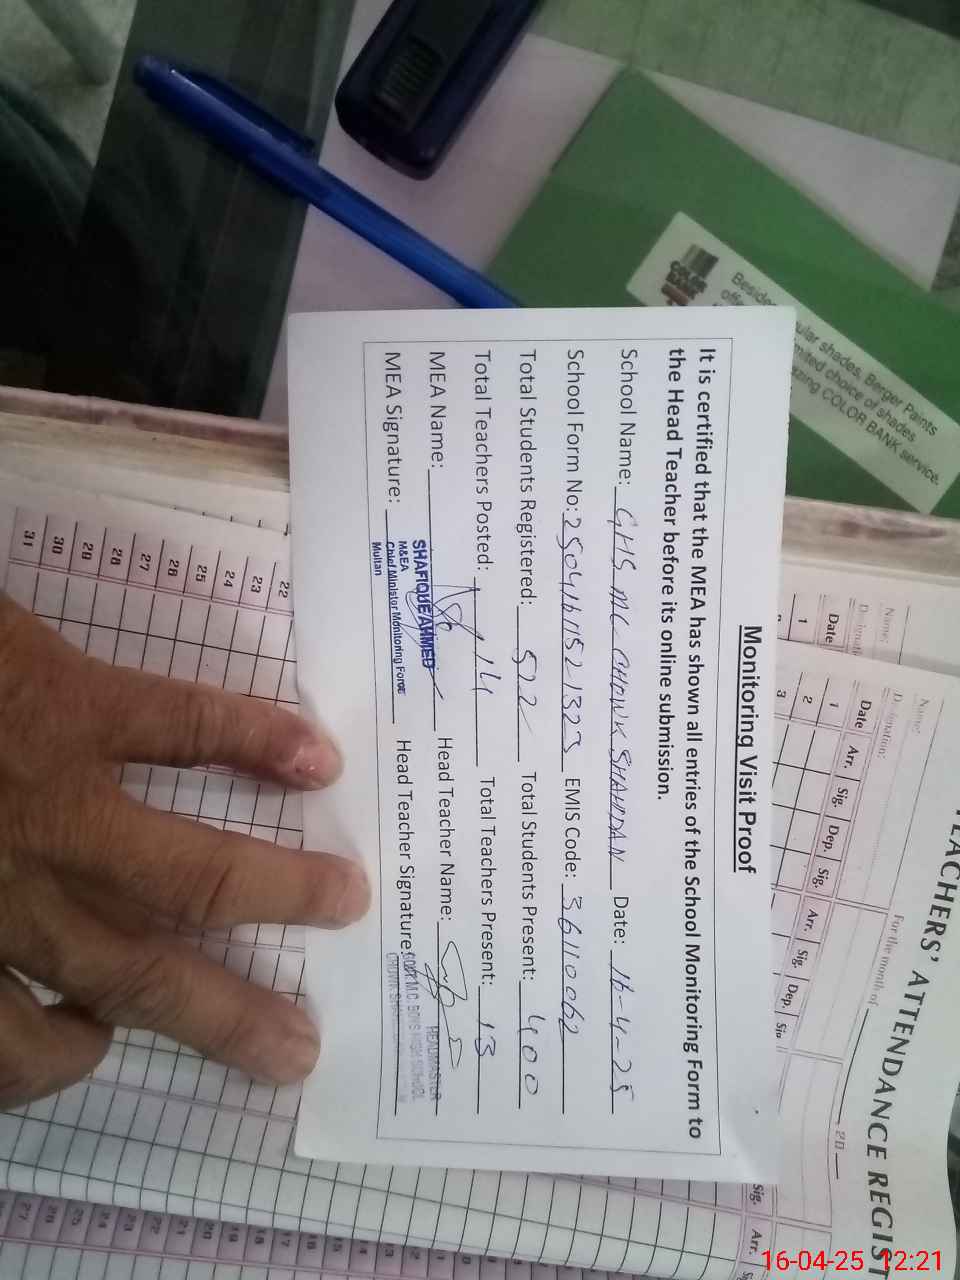 Monitoring Visit Proof
It is certified that the MEA has shown all entries of the School Monitoring Form to
the Head Teacher before its online submission.
School Name: GHS MC CHOWK SHAHDDAN Date: 16-4-25
School Form No: 2504161152-1323 EMIS Code: 36110062
Total Students Registered: 522 Total Students Present: 400
Total Teachers Posted: 14 Total Teachers Present: 13
MEA Name: Head Teacher Name:
SHAFIQUE AHMED
M&EA
Chief Minister Monitoring Force
Multan
MEA Signature: Head Teacher Signature:
HEADMASTER
M.C. BOYS HIGH SCHOOL
CHOWK
COLOR
BANK
ular shades, Berger Paints
mited choice of shades
zing COLOR BANK service.
TEACHERS' ATTENDANCE REGIST
Name:
Designation:
For the month of 20
Date Arr. Sig. Dep. Sig. Arr. Sig. Dep. Sig
1
2
3
Name:
Date
1
22
23
24
25
26
27
28
29
30
31
16-04-25 12:21